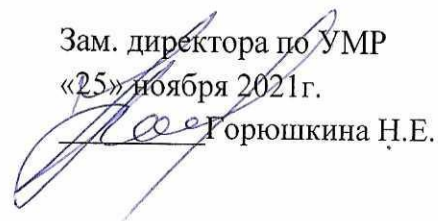 Зам. директора по УМР
«25» ноября 2021г.
________Горюшкина Н.Е.